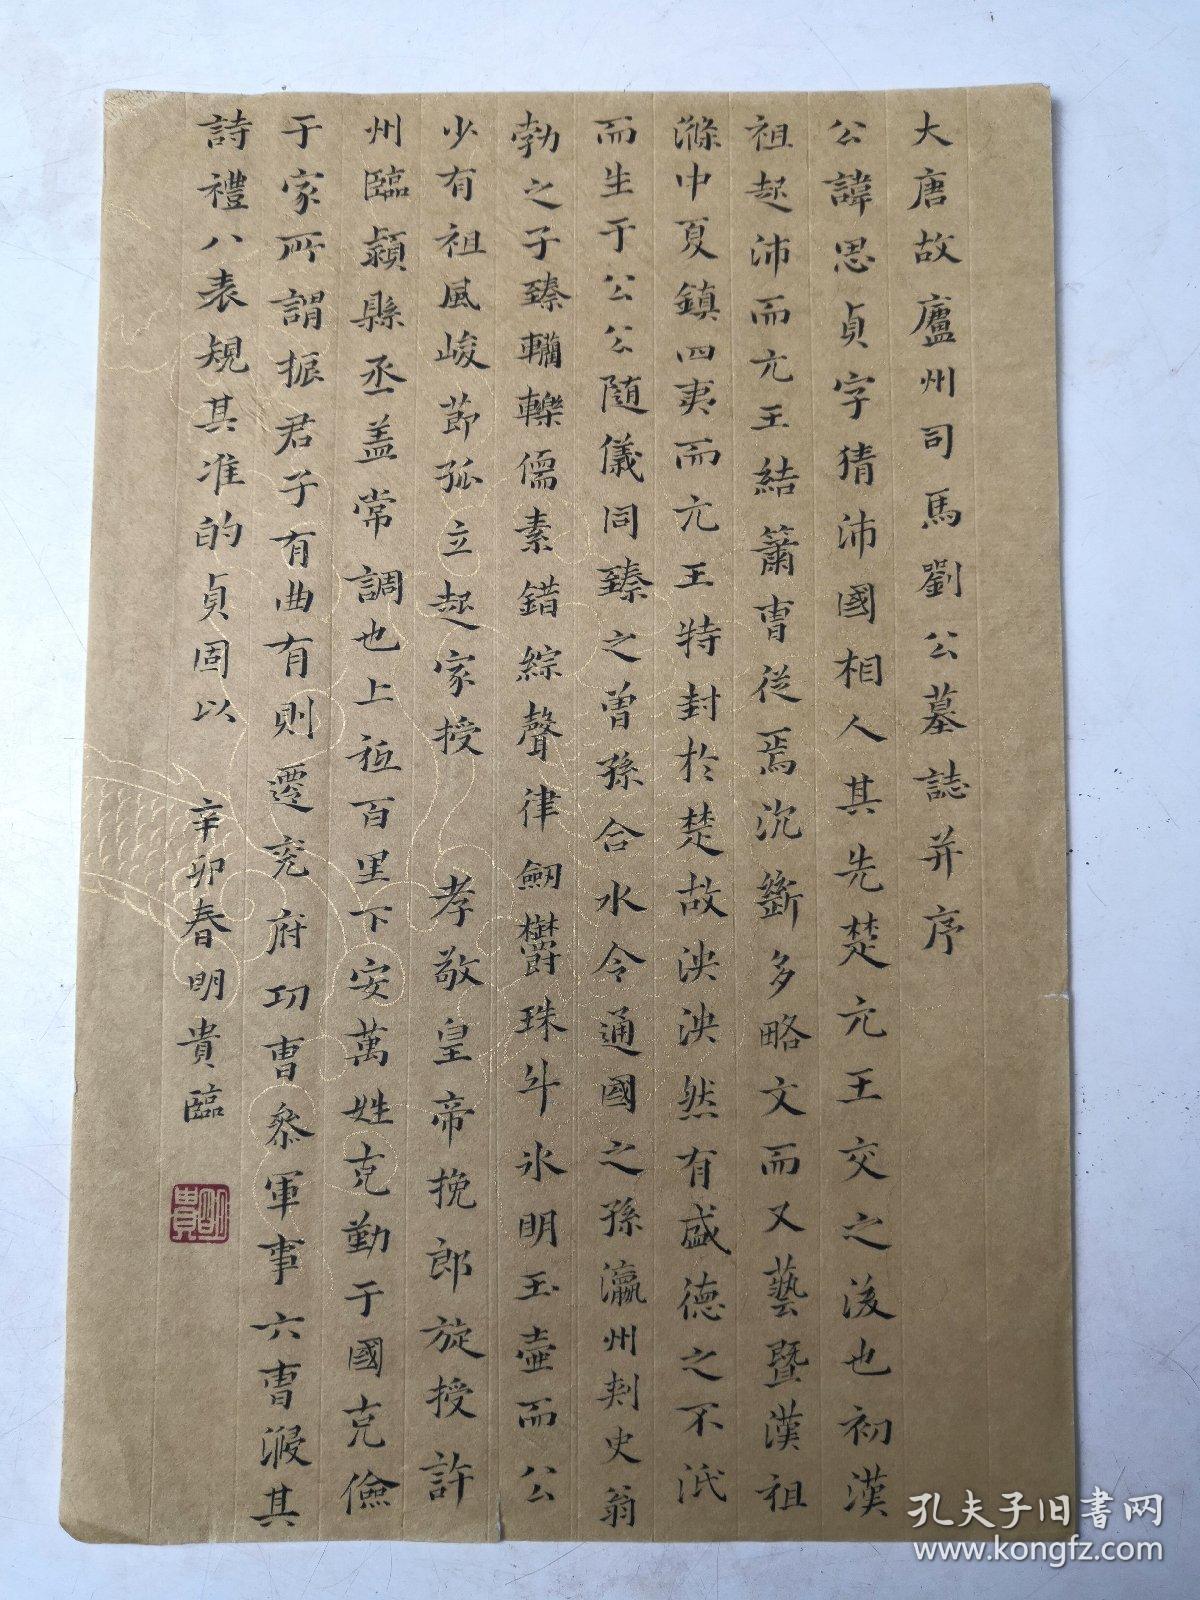 大唐故廬州司馬劉公墓誌并序
公諱思貞字猜沛國相人其先楚亢王交之後也初漢
祖起沛而亢王結蕭曹從焉沉斷多略文而又藝暨漢祖
滌中夏鎮四夷而亢王特封於楚故泱泱然有盛德之不泯
而生于公公隨儀同臻之曾孫合水令通國之孫瀛州刾史翁
勃之子臻轥轢儒素錯綜聲律劒欝珠斗氷明玉壷而公
少有祖風峻節孤立起家授 孝敬皇帝挽郎旋授許
州臨潁縣丞盖常調也上祗百里下安萬姓克勤于國克儉
于家所謂振君子有曲有則遷兖府功曹叅軍事六曹服其
詩禮八表規其准的貞固以 辛卯春明貴臨
明貴
孔夫子旧书网
www.kongfz.com